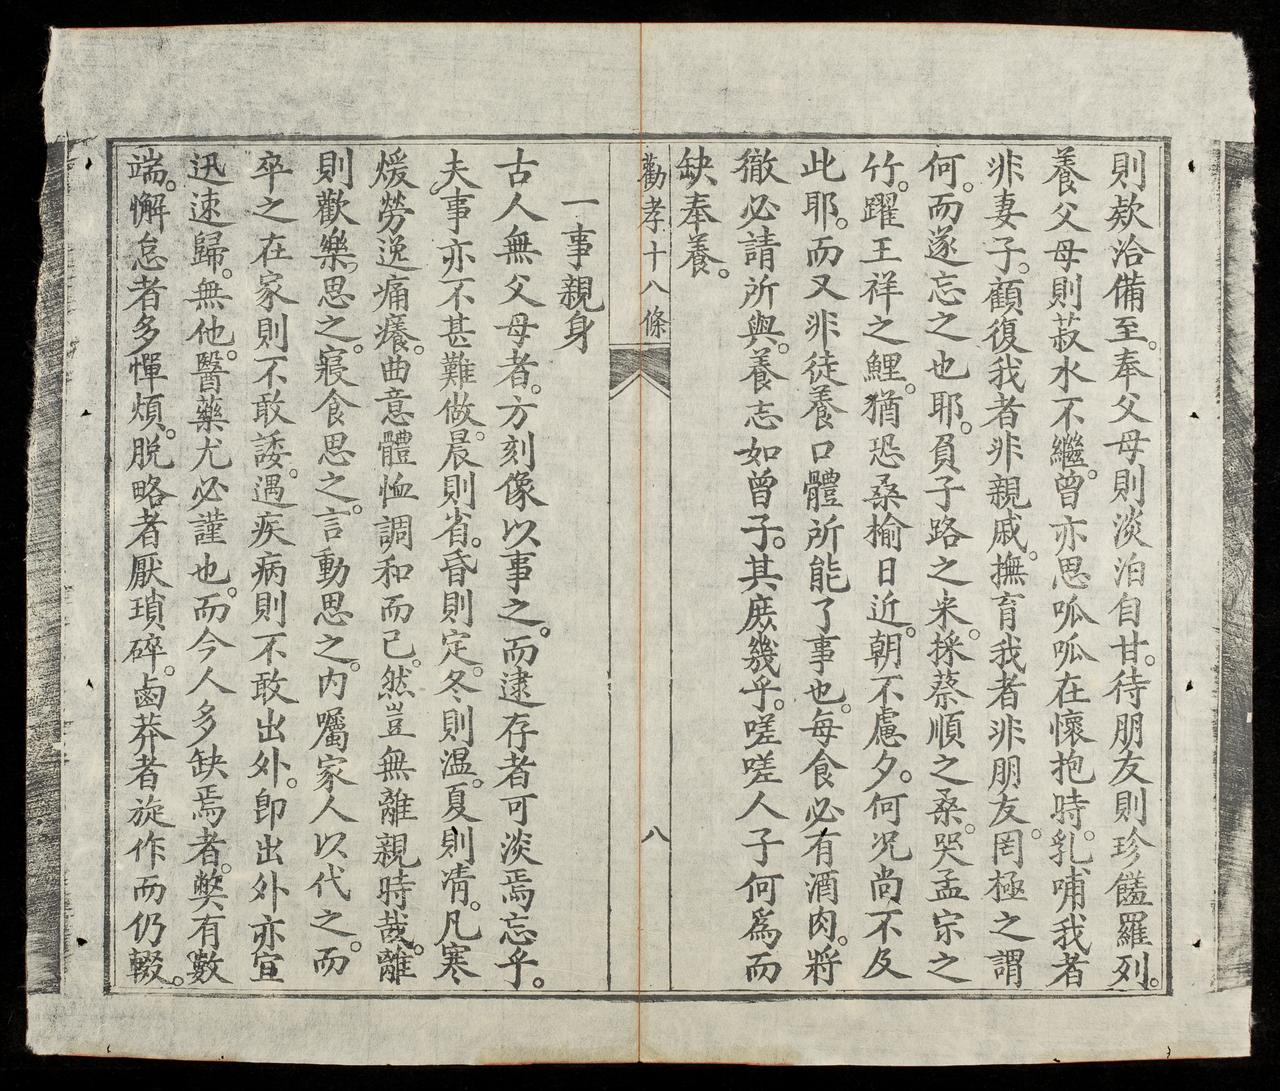 則欵洽備至。奉父母則淡泊自甘。待朋友則珍饈羅列。
養父母則菽水不繼。曾亦思呱呱在懷抱時。乳哺我者
非妻子。顧復我者非親戚。撫育我者非朋友。罔極之謂
何。而遂忘之也耶。負子路之米。採蔡順之桑。哭孟宗之
竹。躍王祥之鯉。猶恐桑榆日近。朝不慮夕。何况尚不及
此耶。而又非徒養口體所能了事也。每食必有酒肉。將
徹必請所與。養志如曾子。其庶幾乎。嗟嗟人子何爲而
缺奉養。
勸孝十八條
八
一事親身
古人無父母者。方刻像以事之。而逮存者可淡焉忘乎。
夫事亦不甚難做。晨則省。昏則定。冬則温。夏則凊。凡寒
煖勞逸痛癢。曲意體恤調和而已。然豈無離親時哉。離
則歡樂思之。寢食思之。言動思之。内囑家人以代之。而
卒之在家則不敢諉。遇疾病則不敢出外。卽出外亦宜
迅速歸。無他。醫藥尤必謹也。而今人多缺焉者。弊有數
端。懈怠者多憚煩。脱略者厭瑣碎。鹵莽者旋作而仍輟。